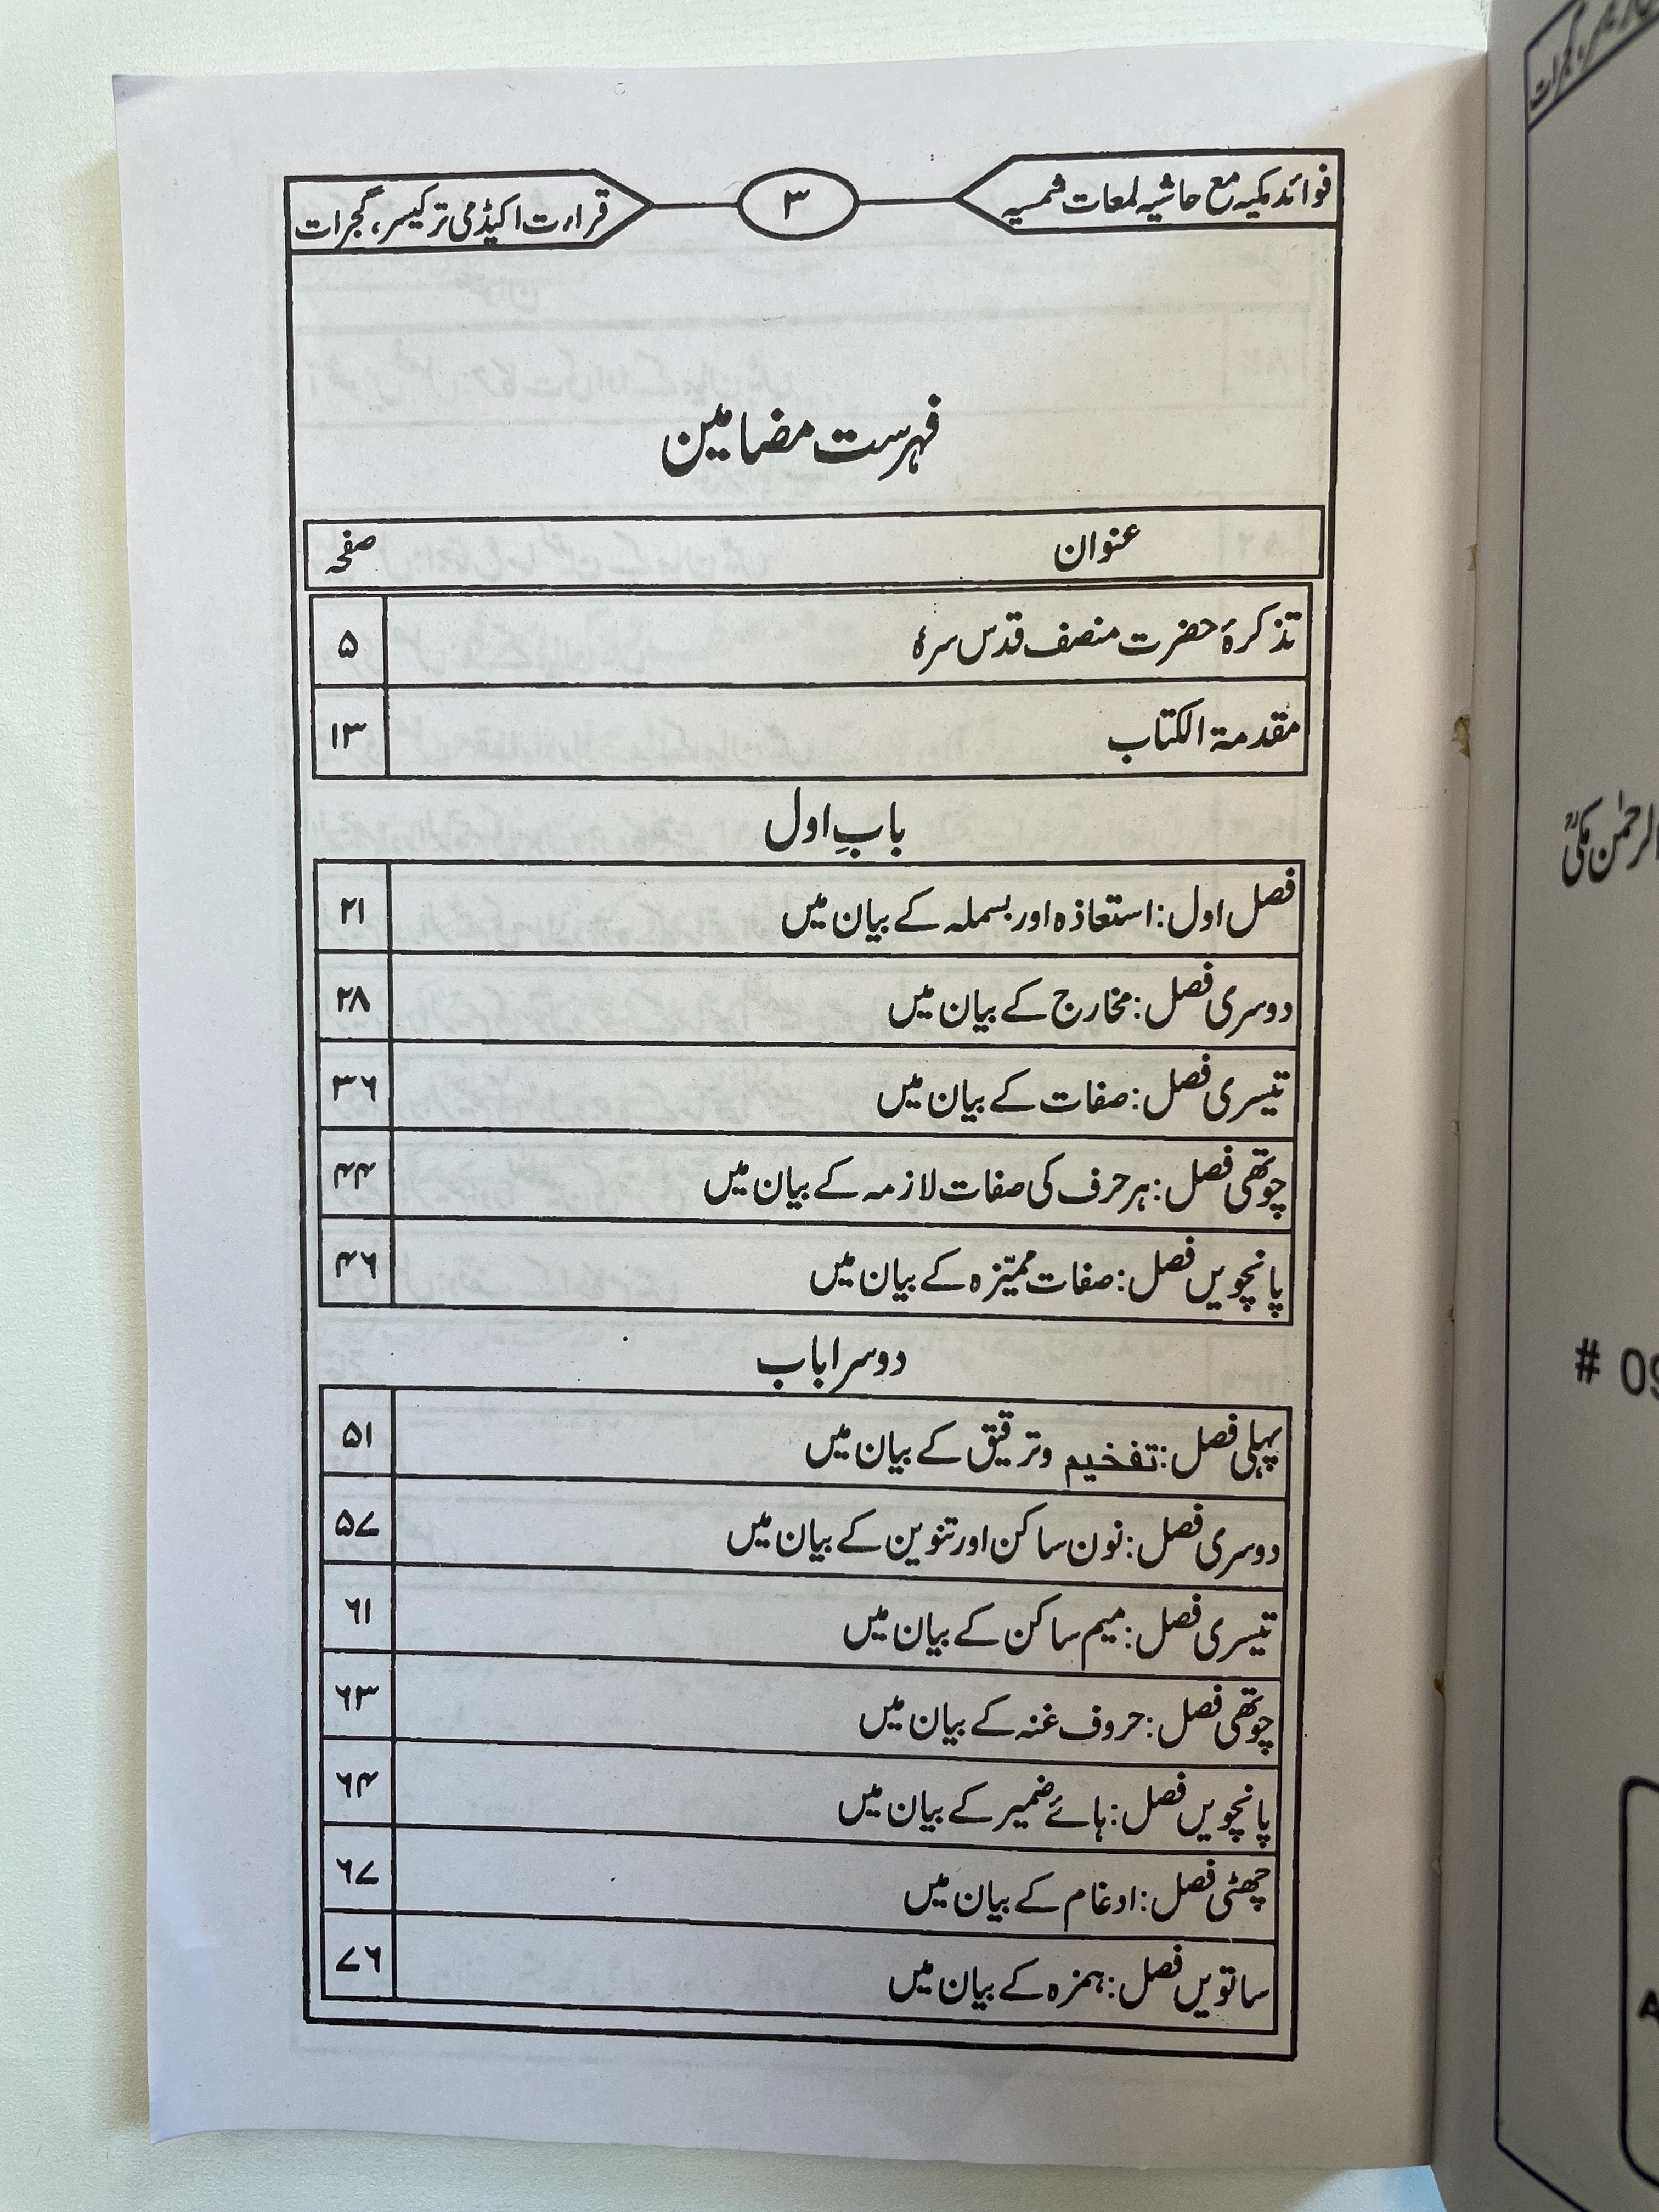 فوائد مکیہ مع حاشیہ لمعات شمسیہ
۳
قراءت اکیڈمی ترکیسر، گجرات
فہرست مضامین
عنوان صفحہ
تذکرۂ حضرت منصف قدس سرہٗ ۵
مقدمۃ الکتاب ۱۳
بابِ اول
فصل اول: استعاذہ اور بسملہ کے بیان میں ۲۱
دوسری فصل: مخارج کے بیان میں ۲۸
تیسری فصل: صفات کے بیان میں ۳۶
چوتھی فصل: ہر حرف کی صفات لازمہ کے بیان میں ۴۴
پانچویں فصل: صفات ممیّزہ کے بیان میں ۴۶
دوسرا باب
پہلی فصل: تفخیم وترقیق کے بیان میں ۵۱
دوسری فصل: نون ساکن اور تنوین کے بیان میں ۵۷
تیسری فصل: میم ساکن کے بیان میں ۶۱
چوتھی فصل: حروف غنہ کے بیان میں ۶۳
پانچویں فصل: ہائے ضمیر کے بیان میں ۶۴
چھٹی فصل: ادغام کے بیان میں ۶۷
ساتویں فصل: ہمزہ کے بیان میں ۷۶
گجرات
الرحمٰن مکیؒ
# 09